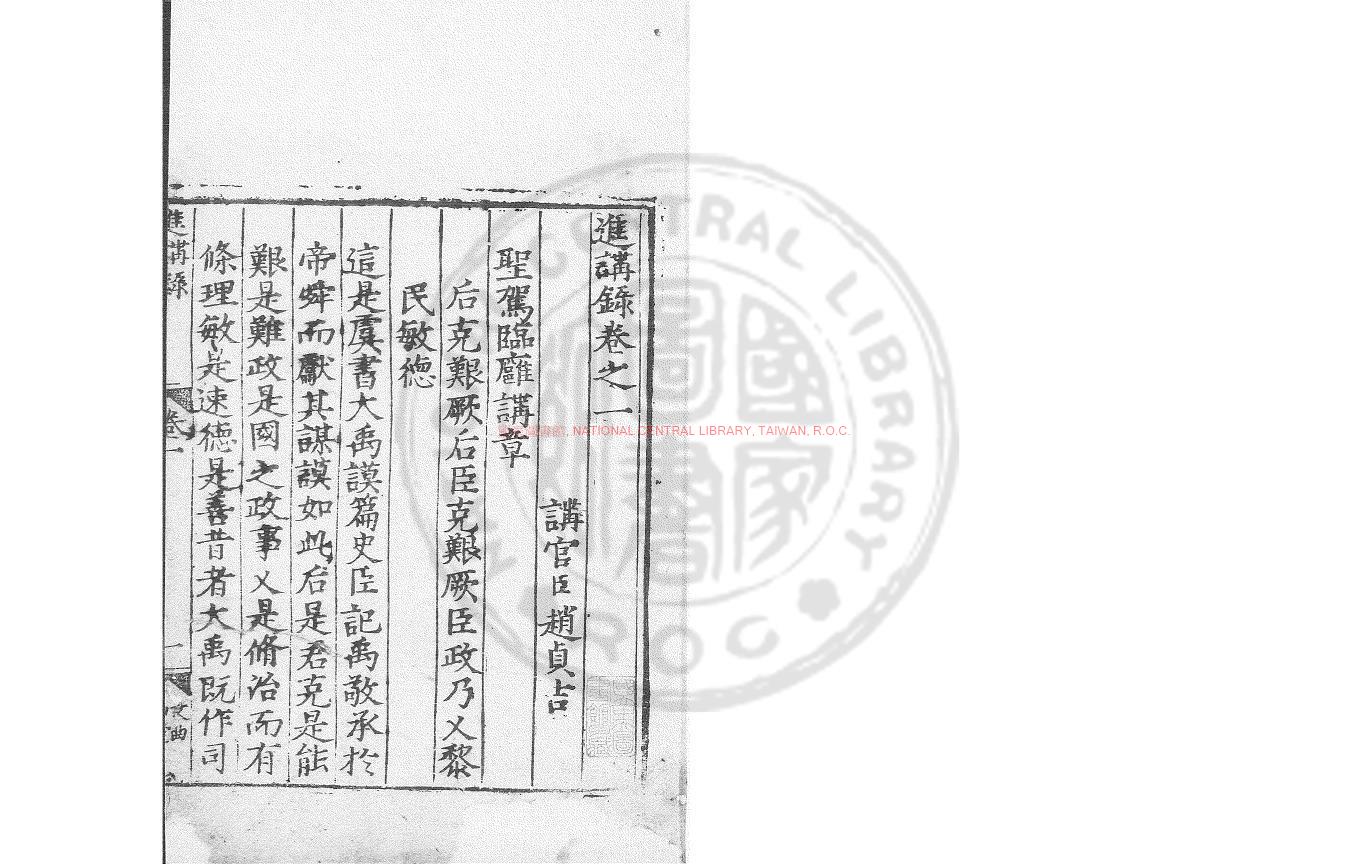 進講錄卷之一
講官臣趙貞吉
聖駕臨雝講章
后克艱厥后臣克艱厥臣政乃乂黎
民敏德
這是虞書大禹謨篇史臣記禹敬承於
帝舜而獻其謀謨如此后是君克是能
艱是難政是國之政事乂是脩治而有
條理敏是速德是善昔者大禹既作司
進講錄
卷一
一
NATIONAL CENTRAL LIBRARY, TAIWAN, R.O.C.
CENTRAL LIBRARY
R O C
國家圖書